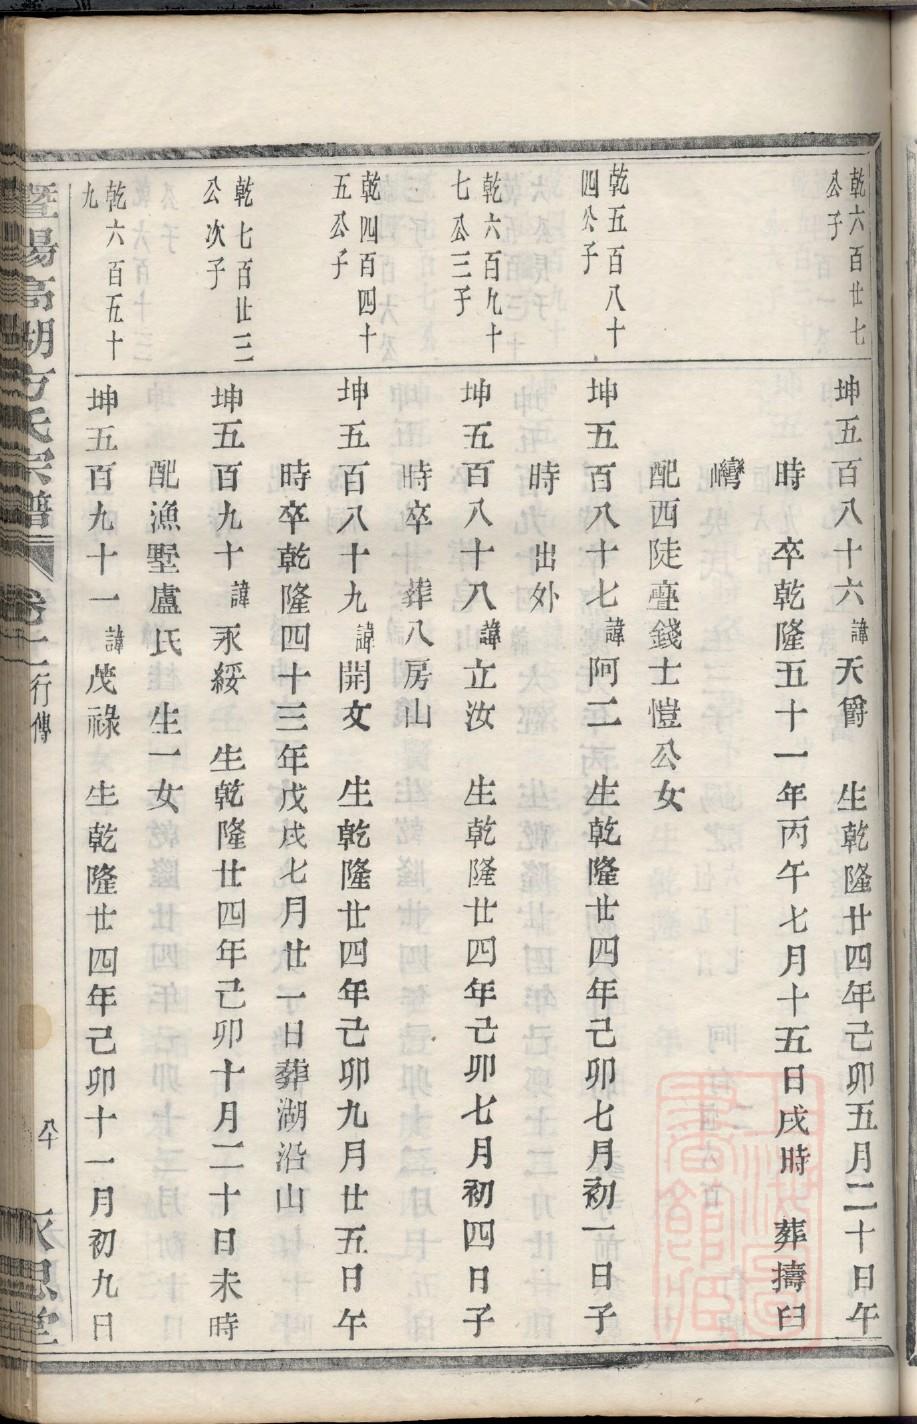 乾六百廿七
公子
坤五百八十六諱天爵 生乾隆廿四年己卯五月二十日午
時 卒乾隆五十一年丙午七月十五日戌時 葬擣臼
灣
配西陡亹錢士愷公女
乾五百八十
四公子
坤五百八十七諱阿二 生乾隆廿四年己卯七月初一日子
時 出外
乾六百九十
七公三子
坤五百八十八諱立汝 生乾隆廿四年己卯七月初四日子
時卒 葬八房山
乾四百四十
五公子
坤五百八十九諱開文 生乾隆廿四年己卯九月廿五日午
時卒乾隆四十三年戊戌七月廿一日葬湖沿山
乾七百廿三
公次子
坤五百九十諱永綏 生乾隆廿四年己卯十月二十日未時
配漁墅盧氏 生一女
乾六百五十
九
坤五百九十一諱茂祿 生乾隆廿四年己卯十一月初九日
暨陽高湖方氏宗譜 卷十二行傳